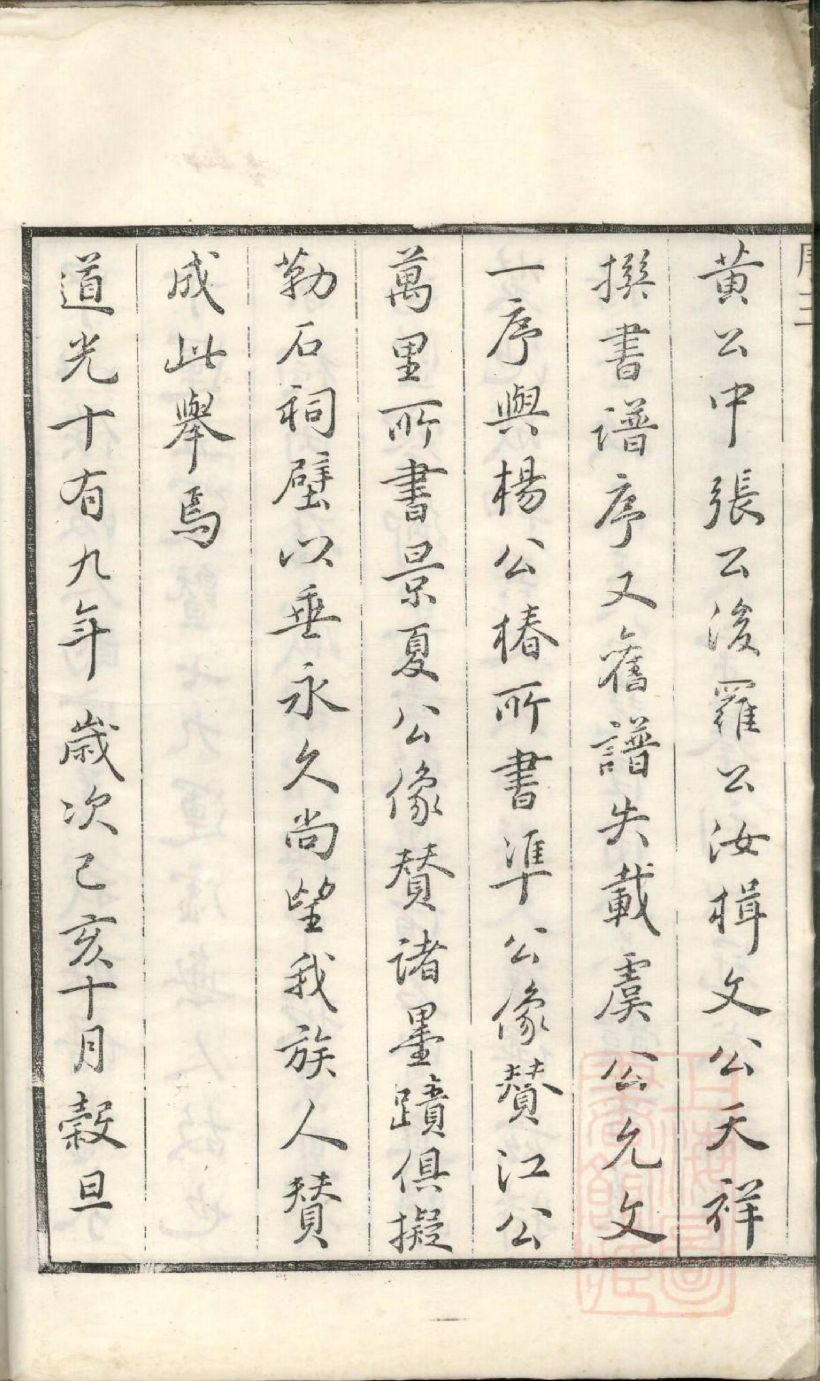 黄公中張公浚羅公汝楫文公天祥
撰書譜序又舊譜失載虞公允文
一序與楊公椿所書準公像贊江公
萬里所書景夏公像贊諸墨蹟俱擬
勒石祠壁以垂永久尚望我族人贊
成此舉焉
道光十有九年歲次己亥十月穀旦